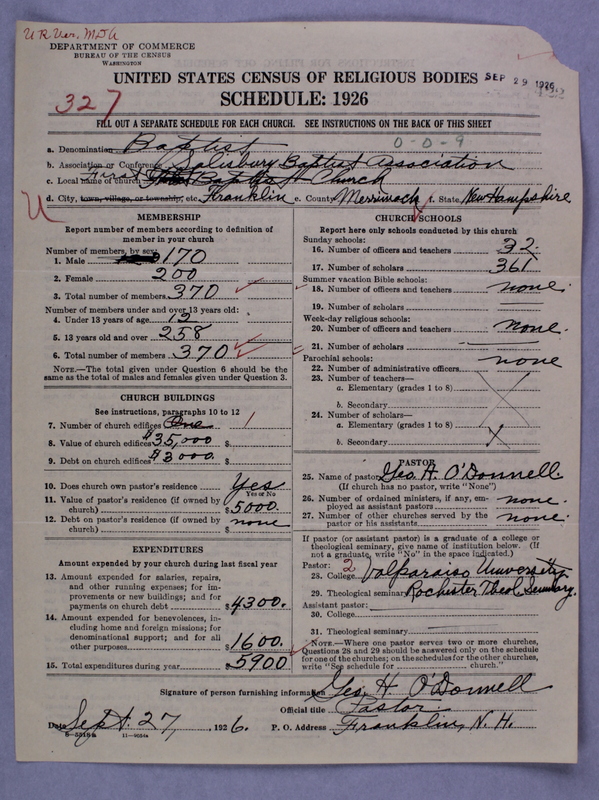 U R Ver. M.D.A
DEPARTMENT OF COMMERCE
BUREAU OF THE CENSUS
WASHINGTON
UNITED STATES CENSUS OF RELIGIOUS BODIES SEP 29 1926
327 SCHEDULE: 1926
FILL OUT A SEPARATE SCHEDULE FOR EACH CHURCH. SEE INSTRUCTIONS ON THE BACK OF THIS SHEET
a. Denomination Baptist 0-0-9
b. Association or Conference Salisbury Baptist Association
c. Local name of church First Baptist Church
d. City, town, village, or township, etc. Franklin e. County Merrimack f. State New Hampshire
MEMBERSHIP
Report number of members according to definition of
member in your church
Number of members, by sex:
1. Male 170
2. Female 200
3. Total number of members 370
Number of members under and over 13 years old:
4. Under 13 years of age 12
5. 13 years old and over 258
6. Total number of members 370
NOTE.—The total given under Question 6 should be the
same as the total of males and females given under Question 3.
CHURCH BUILDINGS
See instructions, paragraphs 10 to 12
7. Number of church edifices One 1
8. Value of church edifices $35,000 $
9. Debt on church edifices $3000. $
10. Does church own pastor's residence Yes
Yes or No
11. Value of pastor's residence (if owned by
church) $5000.
12. Debt on pastor's residence (if owned by
church) $ none
EXPENDITURES
Amount expended by your church during last fiscal year
13. Amount expended for salaries, repairs,
and other running expenses; for im-
provements or new buildings; and for
payments on church debt $4300.
14. Amount expended for benevolences, in-
cluding home and foreign missions; for
denominational support; and for all
other purposes $1600.
15. Total expenditures during year $5900
CHURCH SCHOOLS
Report here only schools conducted by this church
Sunday schools:
16. Number of officers and teachers 32.
17. Number of scholars 361
Summer vacation Bible schools:
18. Number of officers and teachers none.
19. Number of scholars
Week-day religious schools:
20. Number of officers and teachers none.
21. Number of scholars
Parochial schools: none
22. Number of administrative officers
23. Number of teachers—
a. Elementary (grades 1 to 8)
b. Secondary
24. Number of scholars—
a. Elementary (grades 1 to 8)
b. Secondary
PASTOR
25. Name of pastor Geo. H. O'Donnell
(If church has no pastor, write "None")
26. Number of ordained ministers, if any, em-
ployed as assistant pastors none.
27. Number of other churches served by the
pastor or his assistants none.
If pastor (or assistant pastor) is a graduate of a college or
theological seminary, give name of institution below. (If
not a graduate, write "No" in the space indicated.)
Pastor: 2
28. College Valparaiso University
29. Theological seminary Rochester Theol. Seminary.
Assistant pastor:
30. College
31. Theological seminary
NOTE.—Where one pastor serves two or more churches,
Questions 28 and 29 should be answered only on the schedule
for one of the churches; on the schedules for the other churches,
write "See schedule for church."
Signature of person furnishing information Geo. H. O'Donnell
Official title Pastor
Date Sept. 27, 1926. P. O. Address Franklin, N. H.